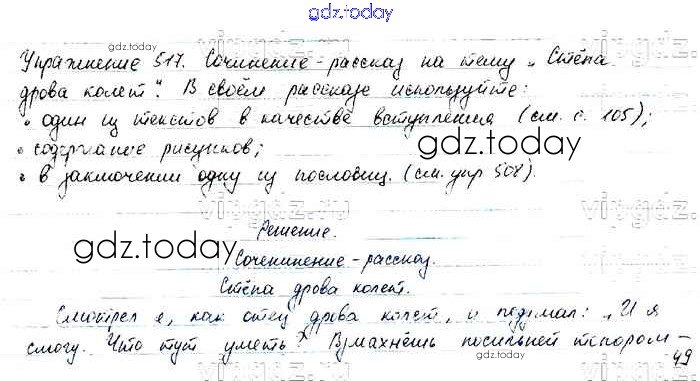 gdz.today
Упражнение 517. Сочинение-рассказ на тему „Стёпа
gdz.today
дрова колет". В своём рассказе используйте:
• один из текстов в качестве вступления (см. с. 105);
• содержание рисунков;
gdz.today
• в заключении одну из пословиц. (см. упр 508).
Решение.
gdz.today
Сочининение-рассказ.
Стёпа дрова колет.
Смотрел я, как отец дрова колет, и подумал: „И я
смогу. Что тут уметь? Взмахнёшь посильней топором -
gdz.today
49